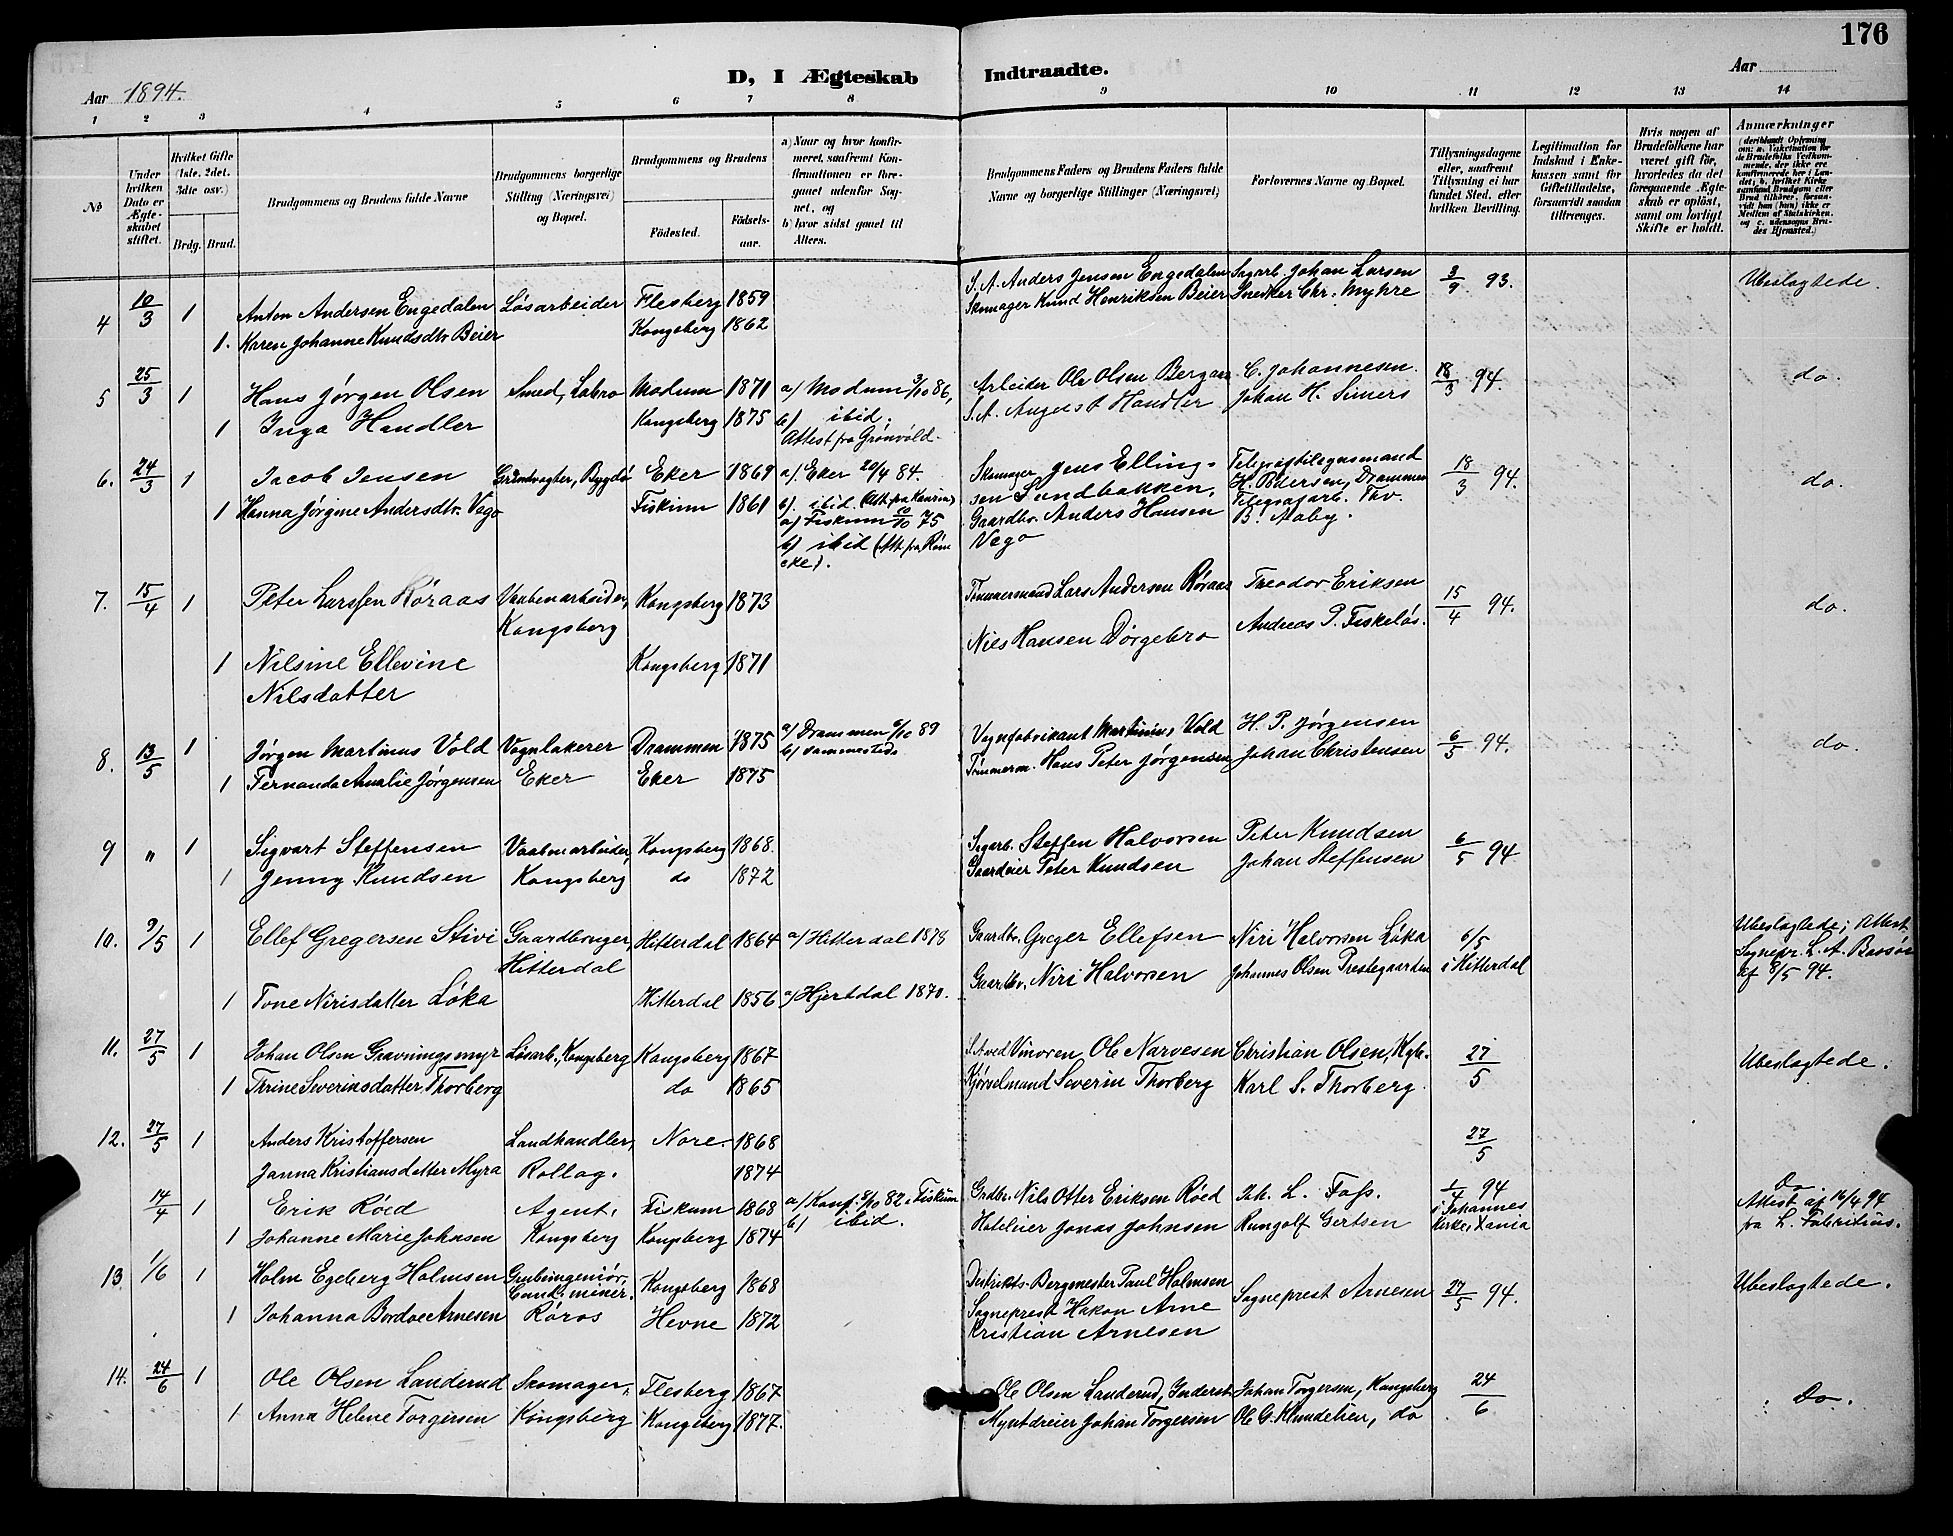 176
D, I Ægteskab Indtraadte.
Aar 1894. Aar
1 2 3 4 5 6 7 8 9 10 11 12 13 14
No
Under hvilken Dato er Ægteskabet stiftet.
Hvilket Gifte (1ste, 2det, 3die osv.)
Brdg. Brud.
Brudgommens og Brudens fulde Navne
Brudgommens borgerlige Stilling (Næringsvei) og Bopæl.
Brudgommens og Brudens
Fødested. Fødselsaar.
a) Naar og hvor konfirmeret, saafremt Konfirmationen er foregaaet udenfor Sognet, og
b) hvor sidst gaaet til Alters.
Brudgommens Faders og Brudens Faders fulde Navne og borgerlige Stillinger (Næringsvei)
Forlovernes Navne og Bopæl.
Tillysningsdagene eller, saafremt Tillysning ei har fundet Sted, efter hvilken Bevilling.
Legitimation for Indskud i Enkekassen samt for Giftetilladelse, forsaavidt saadan tiltrænges.
Hvis nogen af Brudefolkene har været gift før, hvorledes da det foregaaende Ægteskab er opløst, samt om lovligt Skifte er holdt.
Anmærkninger (deriblandt Oplysning om: a. Vaksination for de Brudefolks Vedkommende, der ikke ere konfirmerede her i Landet; b. hvilket Kirkesamfund Brudgom eller Brud tilhører, forsaavidt han (hun) ikke er Medlem af Statskirken, og c. udensogns Brudes Hjemsted.)
4 10/3 1 Anton Andersen Engedalen Løsarbeider Flesberg 1859 S. A. Anders Jensen Engedalen Sagarb. Johan Larsen 3/9 93. Ubeslagtede.
1. Karen Johanne Knudsdtr. Beier Kongsberg 1862 Skomager Knud Henriksen Beier Snedker Chr. Myhre
5 25/3 1 Hans Jørgen Olsen Smed, Labro Modum 1871 a) Modum 3/10 86, Arbeider Ole Olsen Bergan C. Johannesen. 18/3 94. do.
1 Inga Handler Kongsberg 1875 b) ibid. S. A. August Handler Johan H. Simers
Attest fra Grønvold.
6. 24/3 1 Jacob Jensen Grindvogter, Bygdø Eker 1869 a) Eker 20/4 84. Skomager Jens Ellingsen Sandbakken, Telegraftilsynsmand H. Pedersen, Drammen 18/3 94. do.
1 Hanna Jørgine Andersdtr. Vego Fiskum 1861 b). ibid.
a) Fiskum 10/10 75 Gaardbr. Anders Hansen Vego
Telegrafarb. Thv. B. Aaby.
b) ibid
7. 15/4 1 Peter Larssen Røraas Vaabenarbeider, Kongsberg Kongsberg 1873 Tømmermand Lars Andersen Røraas Theodor Eriksen 15/4 94. do.
Niels Hansen Dørgebro Andreas P. Fiskeløs.
1 Nilsine Ellevine Nilsdatter Kongsberg 1871
8. 13/5 1 Jørgen Martinus Vold Vognlakerer Drammen 1875 a) Drammen 6/10 89 Vognfabrikant Martinius Vold H. P. Jørgensen 6/5 94. do.
b) sammesteds
1 Fernanda Amalie Jørgensen Eker Eker 1875 Tømmerm. Hans Peter Jørgensen Johan Christensen
9 " 1 Sigvart Steffensen Vaabenarbeider, Kongsberg 1868. Sagarb. Steffen Halvorsen Peter Knudsen 6/5 94
1 Jenny Knudsen Kongsberg do 1872 Gaardeier Peter Knudsen Johan Steffensen
10. 9/5 1 Ellef Gregersen Stivi Gaardbruger, Hitterdal Hitterdal 1864 a) Hitterdal 1878 Gaardbr. Greger Ellefsen Niri Halvorsen Løka 6/5 i Hitterdal Ubeslagtede; Attest Sognepr. L. A. Bassøe af 8/5 94.
1 Tone Nirisdatter Løka Hitterdal 1856 a) Hjertdal 1870. Gaardbr. Niri Halvorsen Johannes Olsen Prestegaarden
11. 27/5 1 Johan Olsen Gravningsmyr Løsarb., Kongsberg Kongsberg 1867 S. A. ved Vinoren Ole Narvesen Christian Olsen, Kgb. 27/5 Ubeslagtede.
1 Thrine Severinsdatter Thorberg do 1865 Kjørselmand Severin Thorberg Karl S. Thorberg.
12. 27/5 1 Anders Kristoffersen Landhandler, Nore. 1868 27/5
Janna Kristiansdatter Myra Rollag. 1874
14/4 1 Erik Røed Agent, Fiskum 1868 a) Konf. 8/10 82 i Fiskum Grdbr. Nils Otter Eriksen Røed Joh. L. Foss. 1/4 94 i Johannes kirke, Xania Do Attest af 16/4 94 fra L. Fabritius.
b) ibid.
1 Johanne Marie Johnsen Kongsberg Kongsberg 1874 Hoteleier Jonas Johnsen Rungolf Gertsen
13. 1/6 1 Holm Egeberg Holmsen Grubeingeniør, Cand. miner. Kongsberg 1868 Distrikts-Bergmester Paul Holmsen Sogneprest Arnesen 27/5 94. Ubeslagtede.
1 Johanna Bordoe Arnesen Røros Hevne 1872 Sogneprest Hakon Arne Kristian Arnesen
14. 24/6 1 Ole Olsen Landerud Skomager, Flesberg 1867 Ole Olsen Landerud, Inderst Johan Torgersen, Kongsberg 24/6 Do.
1 Anna Helene Torgersen Kongsberg Kongsberg 1877. Myntdreier Johan Torgersen Ole G. Klundelien, do